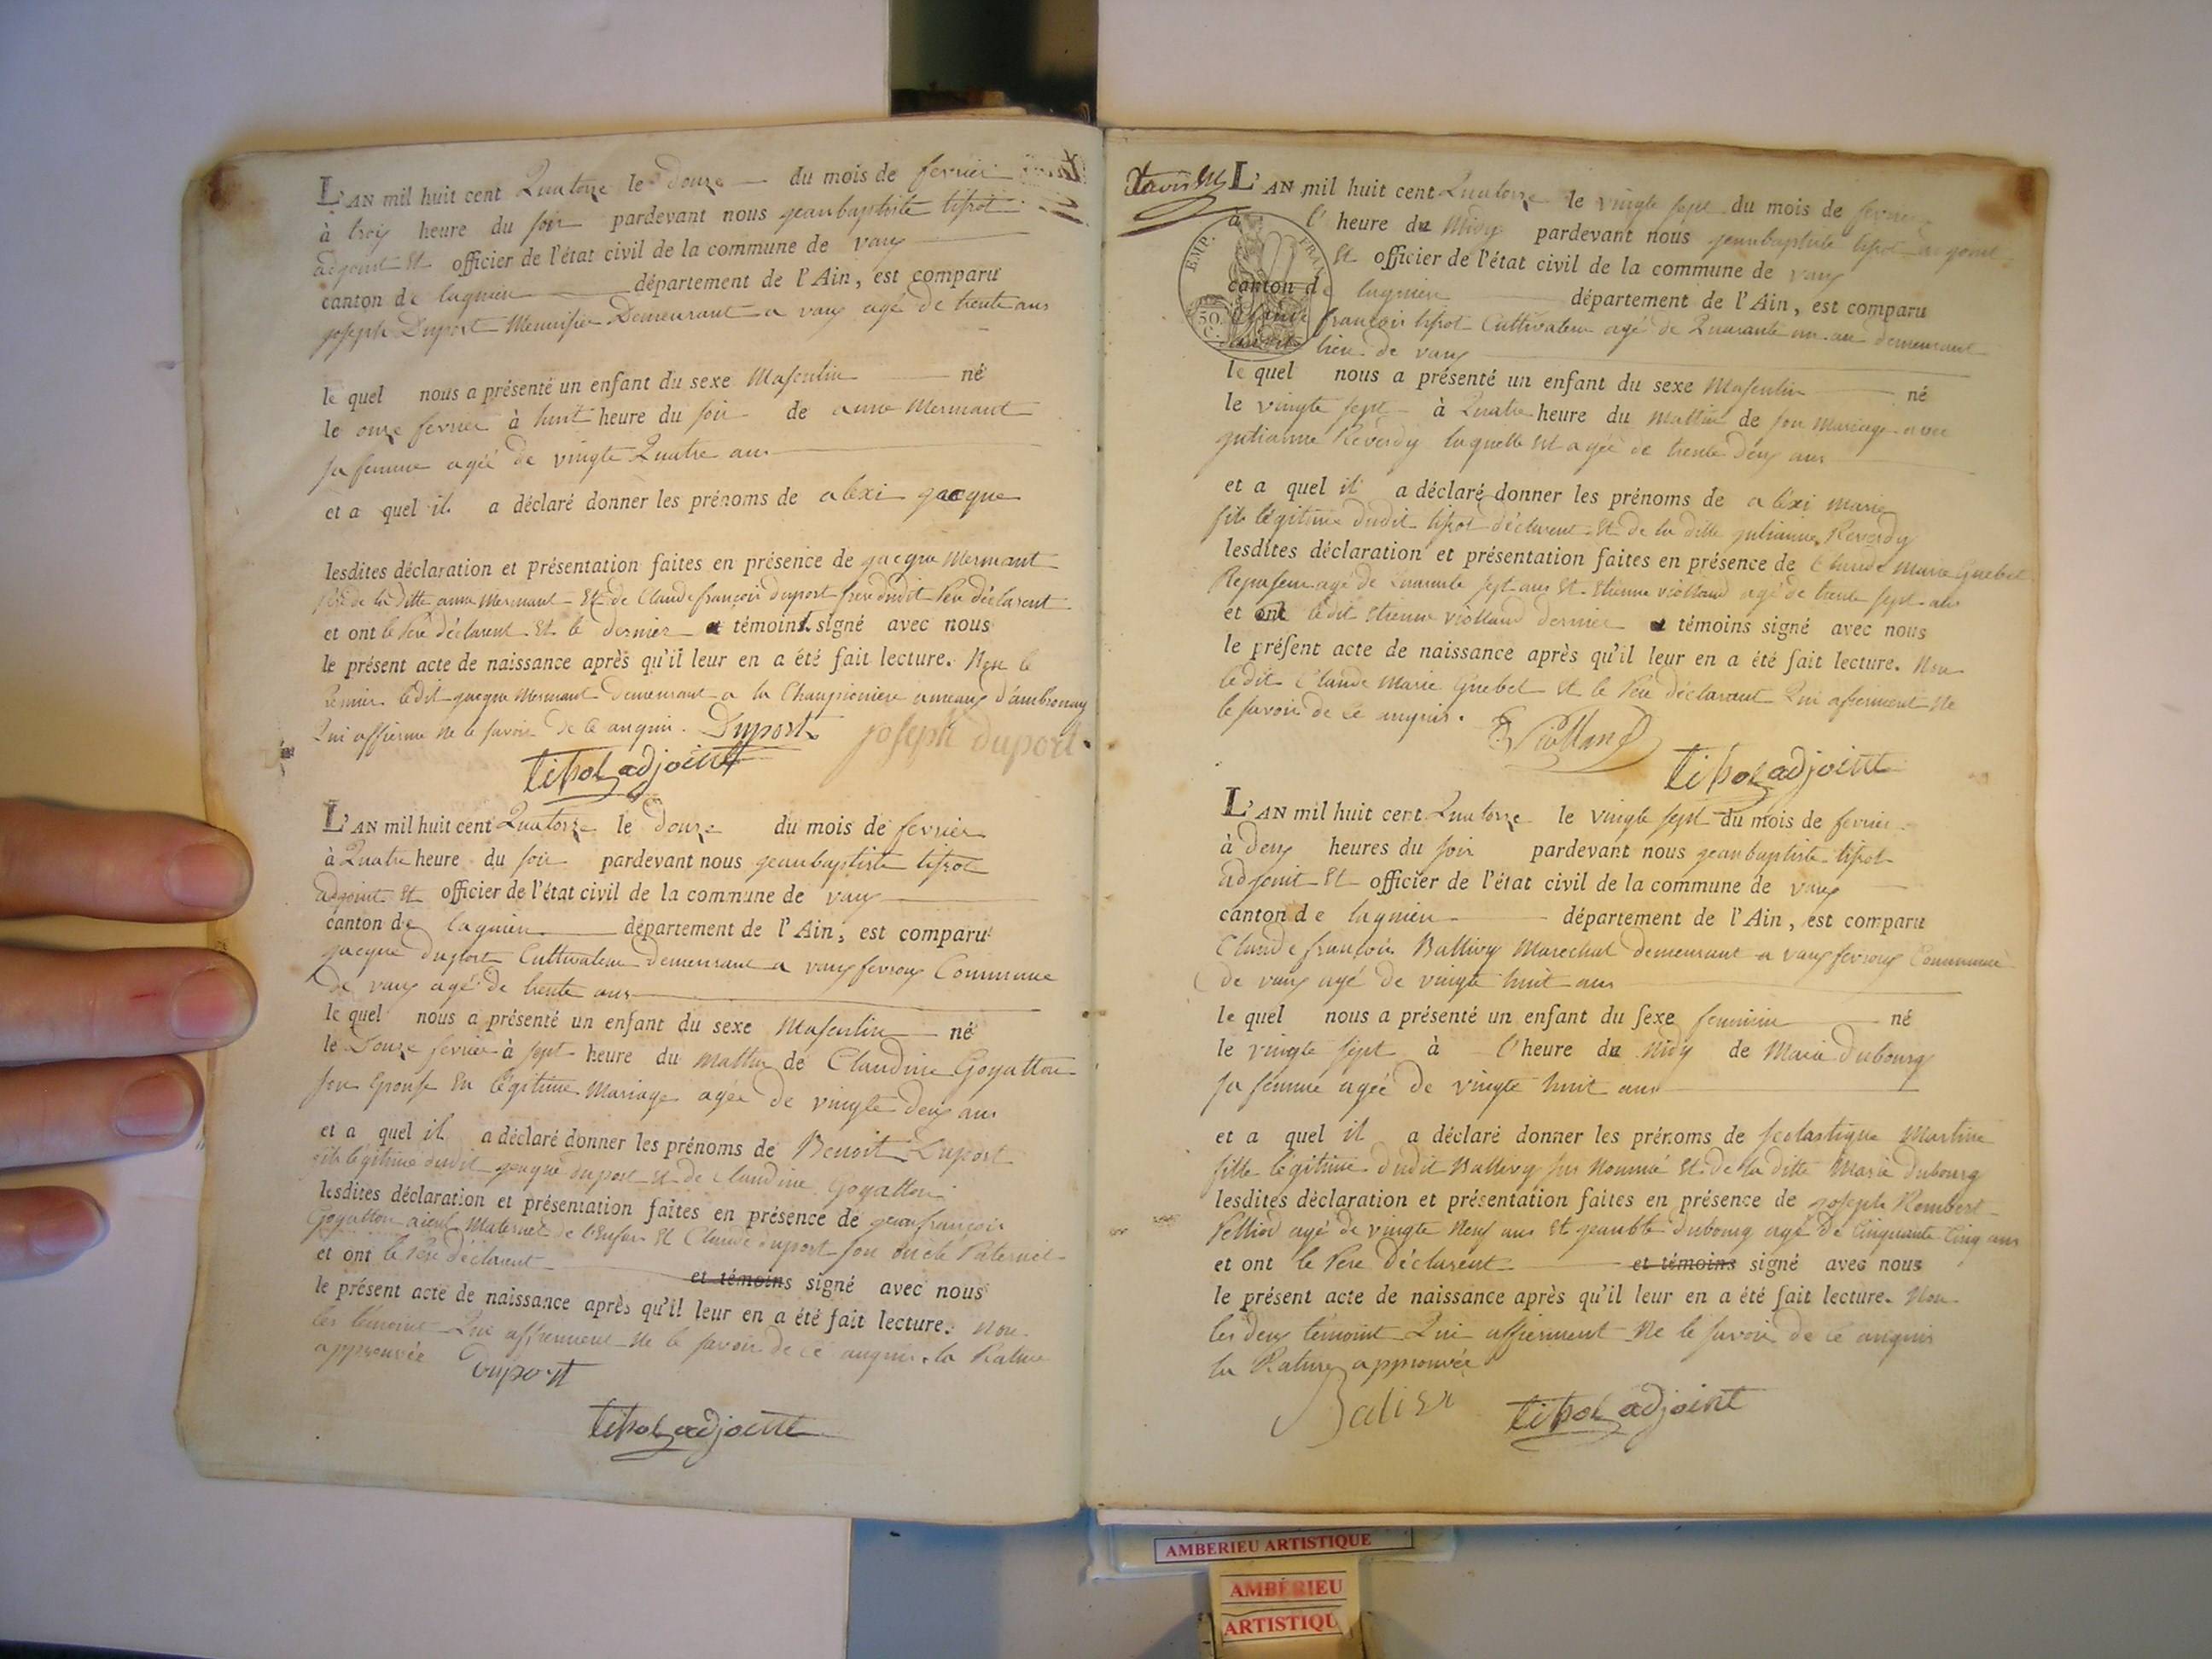 L'AN mil huit cent Quatorze le douze du mois de fevrier
à trois heure du soir pardevant nous jeanbaptiste tissot
adjoint et officier de l'état civil de la commune de vaux
canton de lagnieu département de l'Ain, est comparu
joseph Duport Menuisier Demeurant a vaux agé de trente ans
le quel nous a présenté un enfant du sexe Masculin né
le onze fevrier à huit heure du soir de anne Mermant
sa femme agée de vingte Quatre ans
et a quel il a déclaré donner les prénoms de alexi jacque
lesdites déclaration et présentation faites en présence de jacque Mermant
père de la ditte anne Mermant et de Claude françois duport frere dudit Pere déclarent
et ont le Pere déclarent et le dernier témoins signé avec nous
le présent acte de naissance après qu'il leur en a été fait lecture. Non le
Premier ledit jacque Mermant demeurant a la Championiere ameaux d'ambronay
Qui affirme ne le savoir de ce anquis. Duport joseph duport
tissot adjoint
L'AN mil huit cent Quatorze le douze du mois de fevrier
à Quatre heure du soir pardevant nous jeanbaptiste tissot
adjoint et officier de l'état civil de la commune de vaux
canton de lagnieu département de l'Ain, est comparu
jacque duport Cultivateur demeurant a vaux fevroux Commune
de vaux agé de trente ans
le quel nous a présenté un enfant du sexe Masculin né
le Douze fevrier à sept heure du mattin de Claudine Goyatton
son Epouse en légitime Mariage agée de vingte deux ans
et a quel il a déclaré donner les prénoms de Benoit Duport
fils légitime dudit jacque duport et de Claudine Goyatton
lesdites déclaration et présentation faites en présence de jeanfrançois
Goyatton aieul Maternel de l'Enfan et Claude duport son oncle Paternel
et ont le Pere déclarent et témoins signé avec nous
le présent acte de naissance après qu'il leur en a été fait lecture. Non
les témoins Qui affirment ne le savoir de ce anquis. la Rature
approuvée Duport
tissot adjoint
L'AN mil huit cent Quatorze le vingte sept du mois de fevrier
à l'heure du Midy pardevant nous jeanbaptiste tissot adjoint
et officier de l'état civil de la commune de vaux
EMP. FRAN
50 C.
canton de lagnieu département de l'Ain, est comparu
françois tissot Cultivateur agé de Quarante un an demeurant
lieu de vaux
le quel nous a présenté un enfant du sexe Masculin né
le vingte sept à Quatre heure du mattin de son mariage avec
julianne Reverdy laquelle est agée de trente deux ans
et a quel il a déclaré donner les prénoms de alexi marie
fils légitime dudit tissot déclarent et de la ditte julianne Reverdy
lesdites déclaration et présentation faites en présence de Claude marie Guebet
agé de Quarante sept ans et Etienne violland agé de trente sept ans
et ont ledit Etienne violland dernier témoins signé avec nous
le présent acte de naissance après qu'il leur en a été fait lecture. Non
ledit Claude Marie Guebet et le Pere déclarant Qui afirment ne
le savoir de ce anquis. E Violland
tissot adjoint
L'AN mil huit cent Quatorze le vingte sept du mois de fevrier
à deux heures du soir pardevant nous jeanbaptiste tissot
adjoint et officier de l'état civil de la commune de vaux
canton de lagnieu département de l'Ain, est comparu
Claude françois Ballivy Marechal demeurant a vaux fevroux Commune
de vaux agé de vingte huit ans
le quel nous a présenté un enfant du sexe feminin né
le vingte sept à l'heure du midy de Marie dubourg
sa femme agée de vingte huit ans
et a quel il a déclaré donner les prénoms de scolastique Martine
fille légitime dudit Ballivy sus Nommé et de la ditte Marie dubourg
lesdites déclaration et présentation faites en présence de joseph Rombert
Pelliod agé de vingte Neuf ans et jeanbte dubourg agé de Cinquante Cinq ans
et ont le Pere déclarent et témoins signé avec nous
le présent acte de naissance après qu'il leur en a été fait lecture. Non
les deux témoins Qui affirment ne le savoir de ce anquis
la Rature approuvée
tissot adjoint
AMBERIEU ARTISTIQUE
AMBERIEU
ARTISTIQU